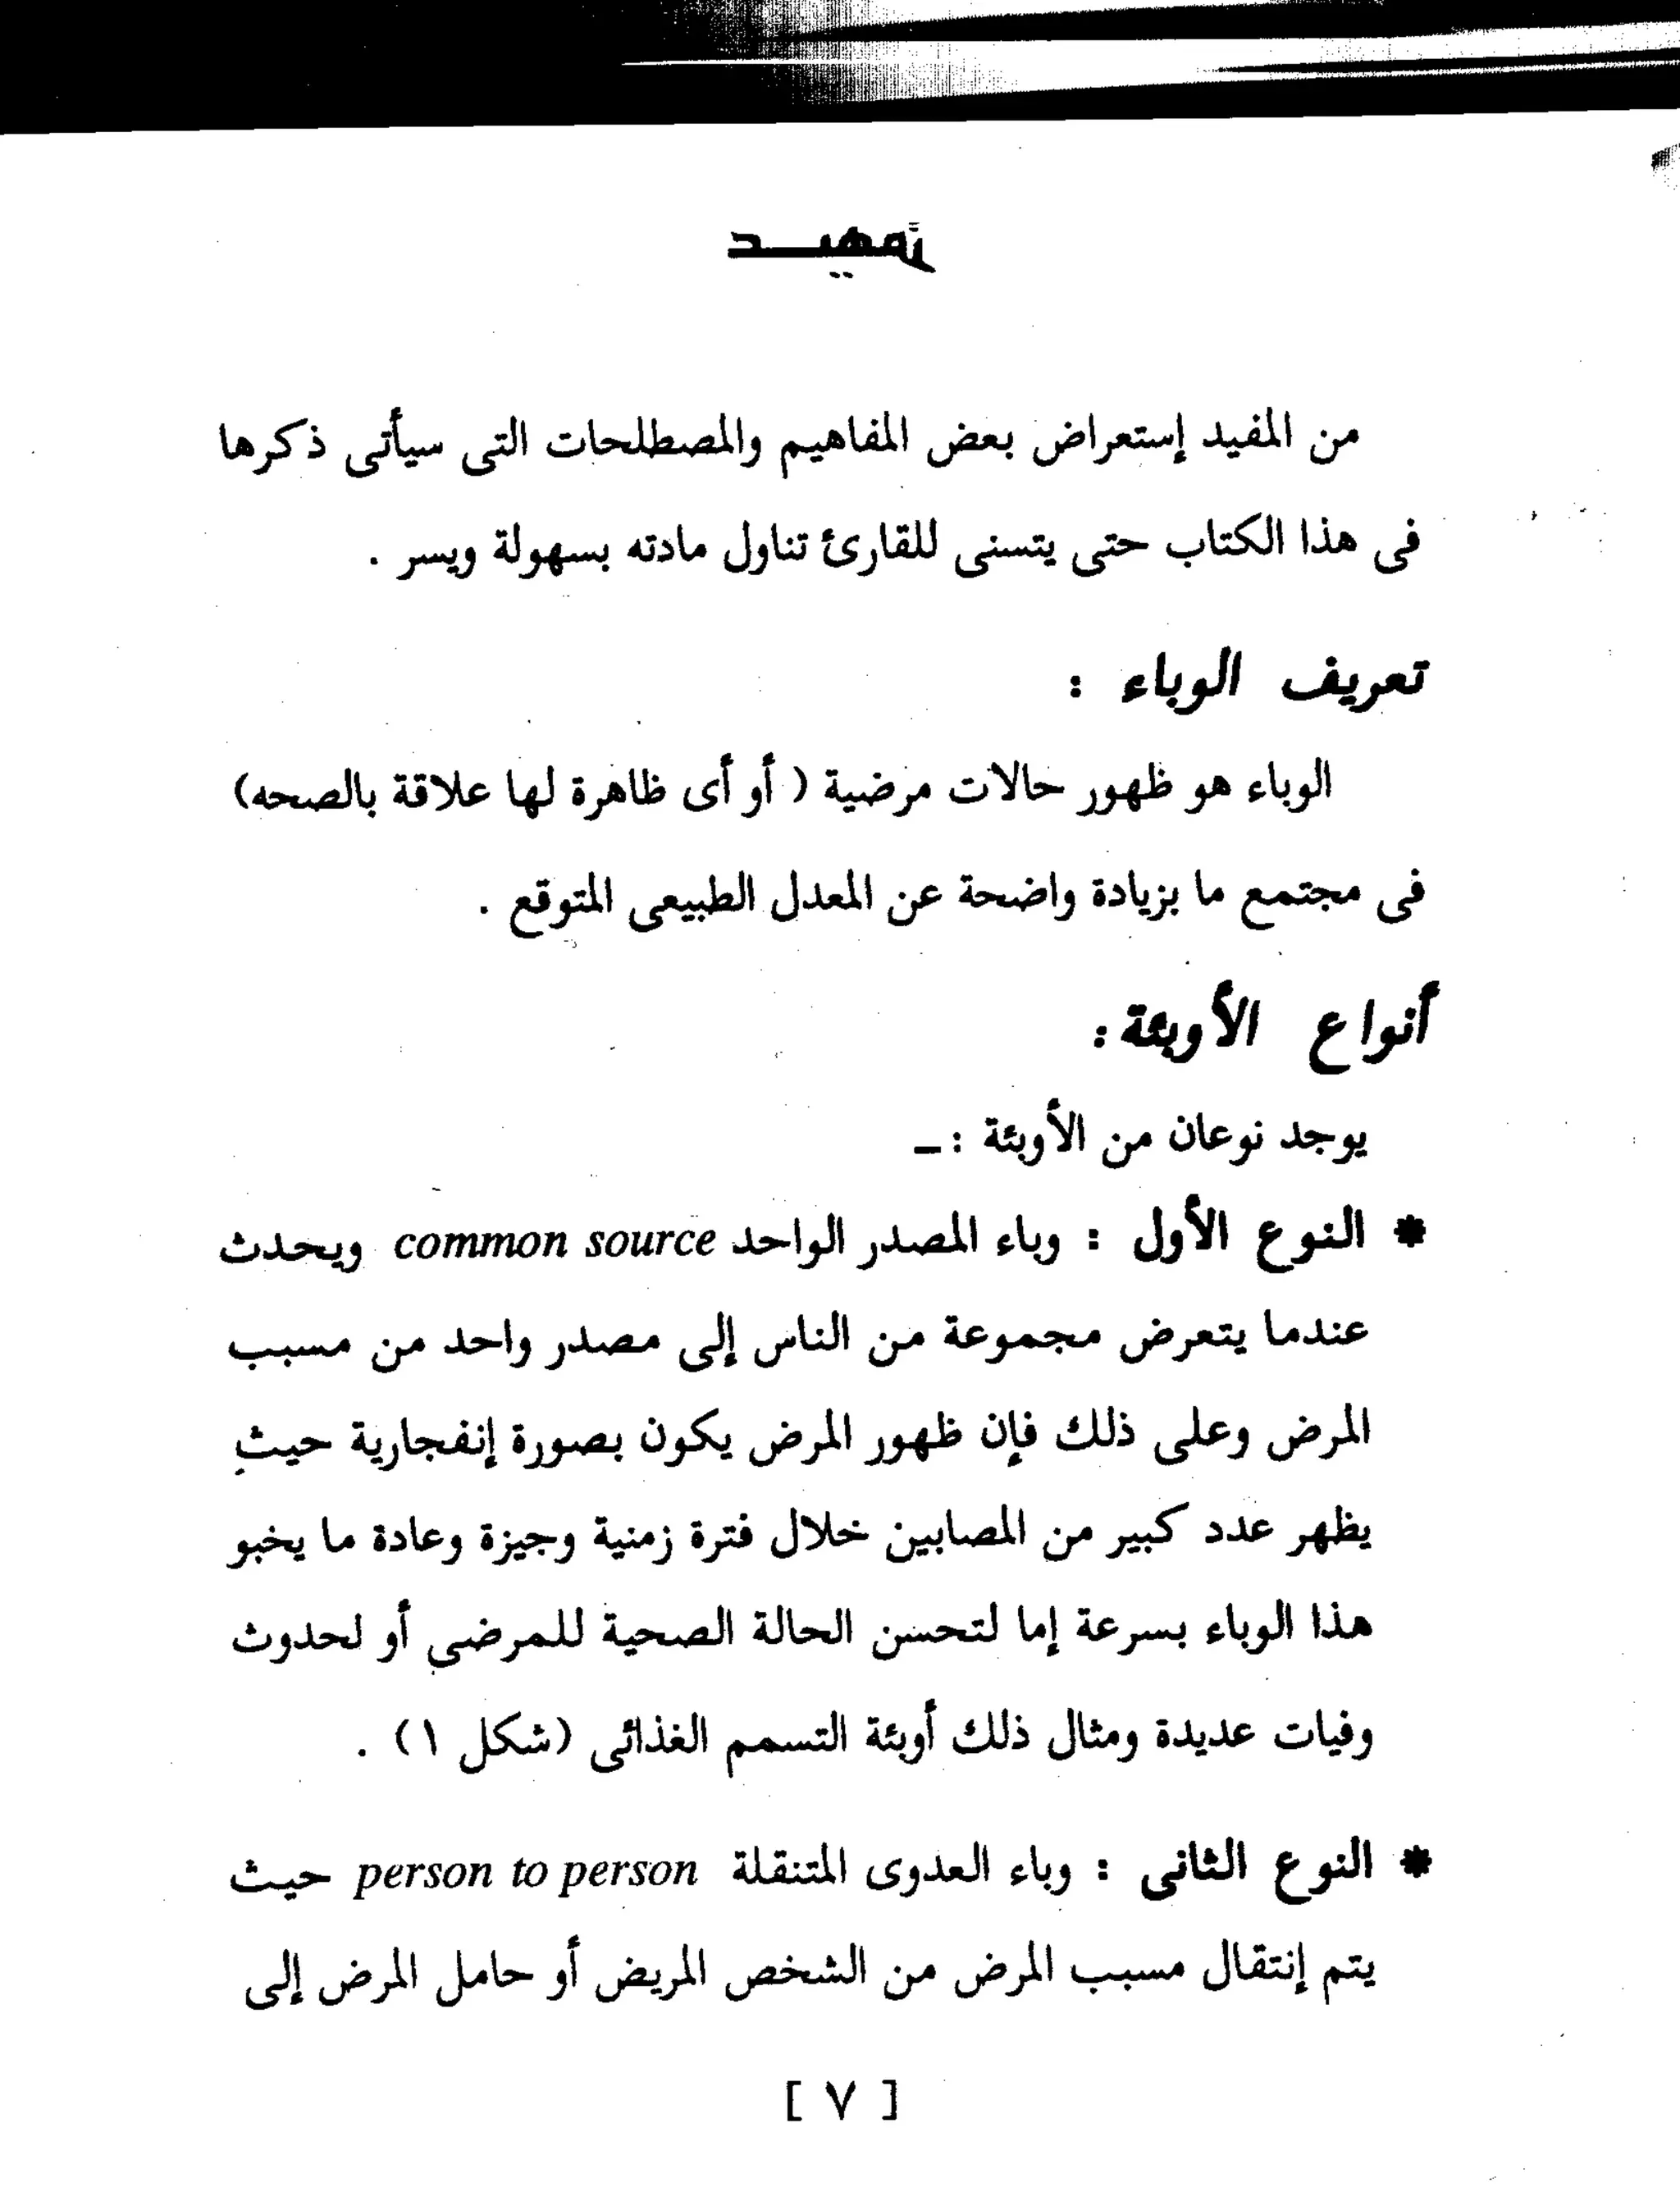 تمهيـــد
من المفيد إستعراض بعض المفاهيم والمصطلحات التى سيأتى ذكرها
فى هذا الكتاب حتى يتسنى للقارئ تناول مادته بسهولة ويسر .
تعريف الوباء :
الوباء هو ظهور حالات مرضية ( أو أى ظاهرة لها علاقة بالصحه)
فى مجتمع ما بزيادة واضحة عن المعدل الطبيعى المتوقع .
أنواع الأوبئة :
يوجد نوعان من الأوبئة : –
* النوع الأول : وباء المصدر الواحد common source ويحدث
عندما يتعرض مجموعة من الناس إلى مصدر واحد من مسبب
المرض وعلى ذلك فإن ظهور المرض يكون بصورة إنفجارية حيث
يظهر عدد كبير من المصابين خلال فترة زمنية وجيزة وعادة ما يخبو
هذا الوباء بسرعة إما لتحسن الحالة الصحية للمرضى أو لحدوث
وفيات عديدة ومثال ذلك أوبئة التسمم الغذائى (شكل ١) .
* النوع الثانى : وباء العدوى المتنقلة person to person حيث
يتم إنتقال مسبب المرض من الشخص المريض أو حامل المرض إلى
[ ٧ ]